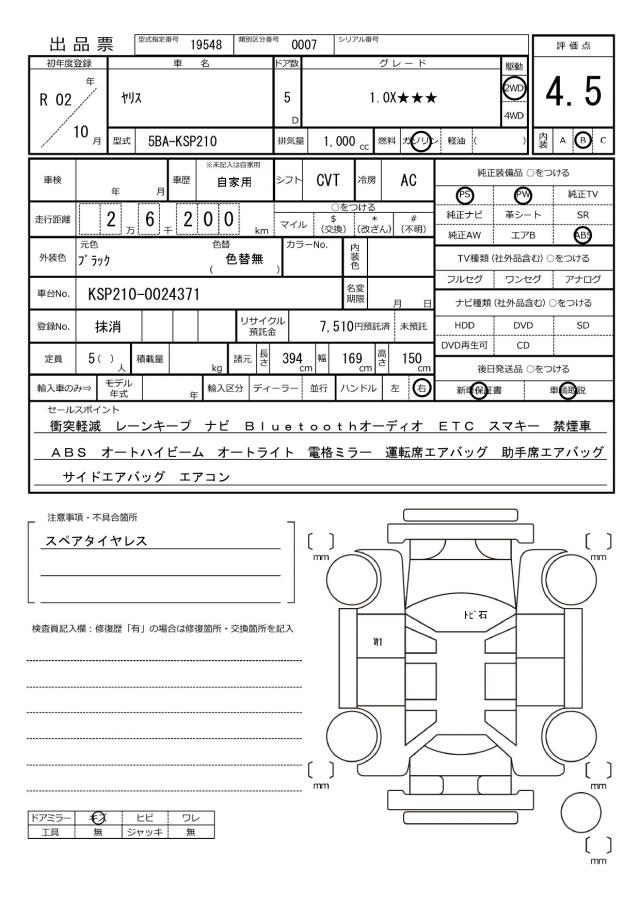 出品票 型式指定番号 19548 類別区分番号 0007 シリアル番号
評価点
4.5
内装 A B C
初年度登録 車名 ドア数 グレード 駆動
R 02 年 10 月 ヤリス 5 D 1.0X★★★ 2WD 4WD
型式 5BA-KSP210 排気量 1,000 cc 燃料 ガソリン 軽油 ( )
車検 年 月 車歴 ※未記入は自家用 自家用 シフト CVT 冷房 AC
走行距離 2 万 6 千 2 0 0 km ○をつける
マイル $ (交換) * (改ざん) # (不明)
外装色 元色 ブラック 色替 ( 色替無 ) カラーNo. 内装色
車台No. KSP210-0024371 名変期限 月 日
登録No. 抹消 リサイクル預託金 7,510円預託済 未預託
定員 5( ) 人 積載量 kg 諸元 長さ 394 cm 幅 169 cm 高さ 150 cm
輸入車のみ⇒ モデル年式 年 輸入区分 ディーラー 並行 ハンドル 左 右
純正装備品 ○をつける
PS PW 純正TV
純正ナビ 革シート SR
純正AW エアB ABS
TV種類(社外品含む)○をつける
フルセグ ワンセグ アナログ
ナビ種類(社外品含む)○をつける
HDD DVD SD
DVD再生可 CD
後日発送品 ○をつける
新車保証書 車輌取説
セールスポイント
衝突軽減 レーンキープ ナビ Bluetoothオーディオ ETC スマキー 禁煙車
ABS オートハイビーム オートライト 電格ミラー 運転席エアバッグ 助手席エアバッグ
サイドエアバッグ エアコン
注意事項・不具合箇所
スペアタイヤレス
検査員記入欄：修復歴「有」の場合は修復箇所・交換箇所を記入
[ ] mm
[ ] mm
トビ石
W1
[ ] mm
[ ] mm
[ ] mm
ドアミラー キズ ヒビ ワレ
工具 無 ジャッキ 無